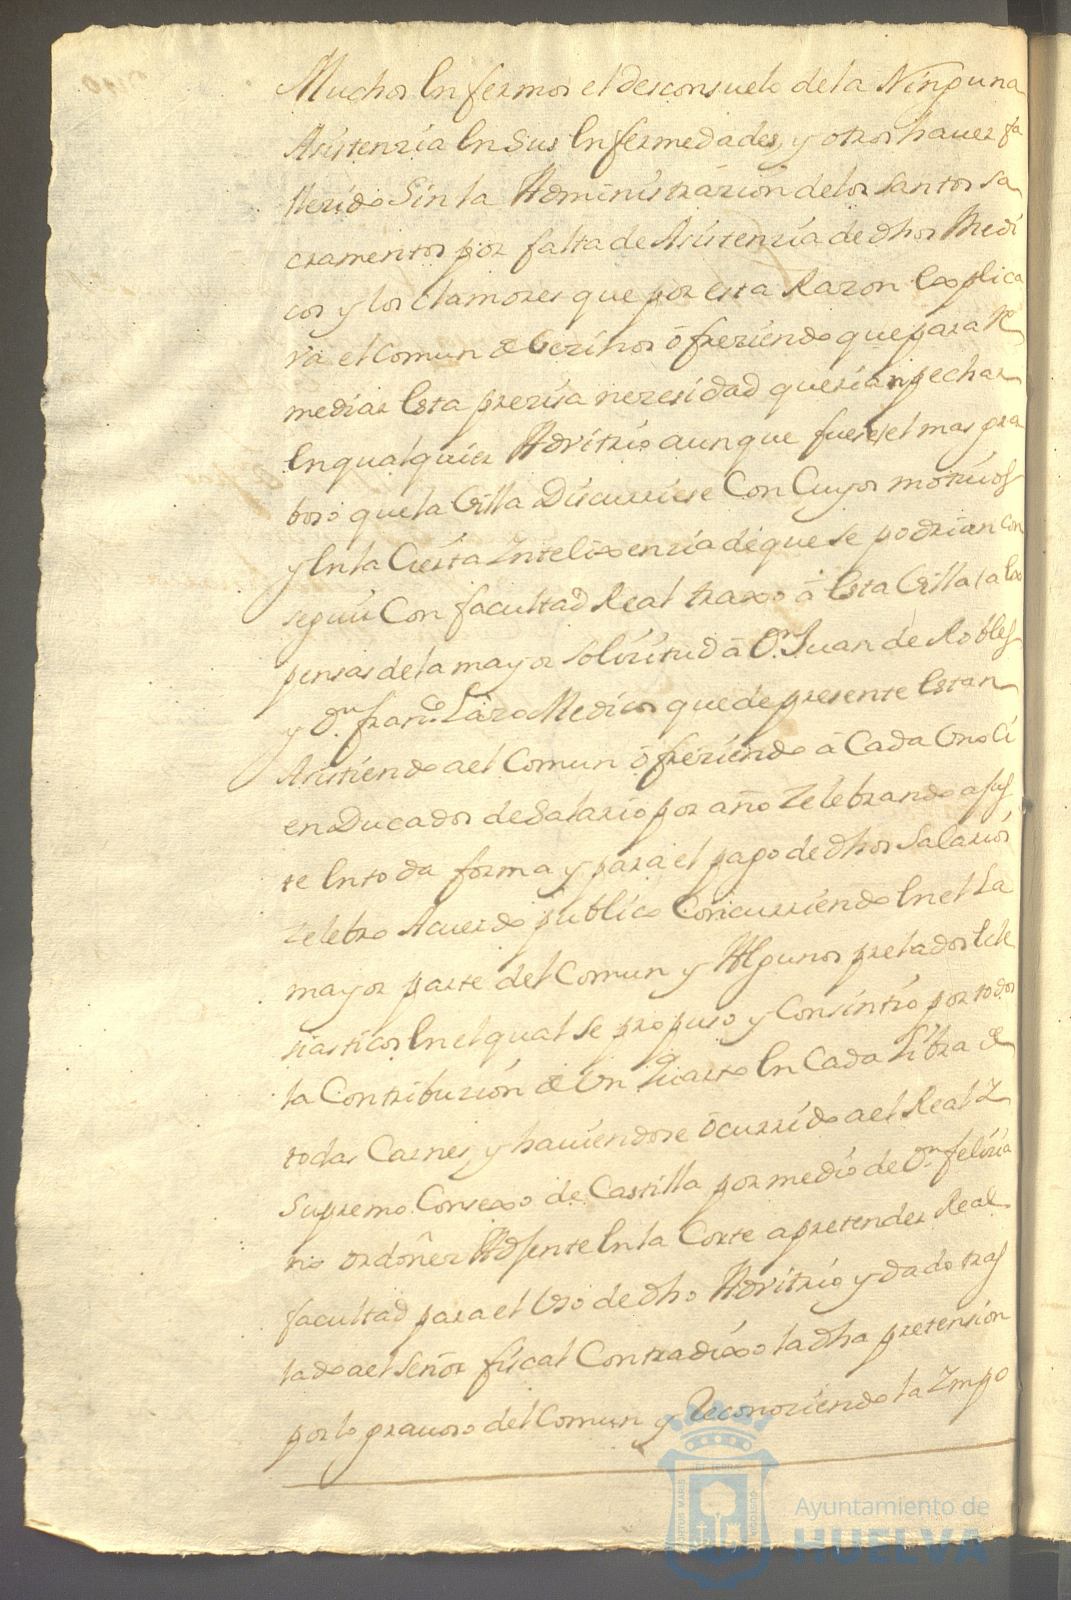 Muchos Enfermos el desconsuelo de la Ninguna
Asistenzia En Sus Enfermedades, y otros hauer fa
llezido Sin la Administrazion de los Santos Sa
cramentos por falta de Asistenzia de dhos Medi
cos y los clamores que por esta Razon Explica
va el Comun de Vezinos ofreziendo que para Re
mediar Esta preziza nezesidad querian pechar
En qualquier Advitrio aunque fuese el mas gra
boso que la Villa Discurriese Con Cuyos motiuos
y En la Cierta Intelixenzia de que se podrian con
seguir Con facultad Real traxo a Esta Villa a Ex
pensas de la mayor Solizitud a Dn. Juan de Robles
y Dn. Franco. Lazo Medicos que de presente Estan
Asistiendo a el Comun ofreziendo a Cada Uno Ci
en Ducados de Salario por año Zelebrando ajus
te En toda forma y para el pago de dhos Salarios
Zelebro Acuerdo publico Concurriendo En el La
mayor parte del Comun y Algunos prelados Ecle
siasticos En el qual se propuso y Consintio por todos
la Contribuzion de Un Quarto En Cada Libra de
todas Carnes, y hauiendose ocurrido a el Real Y
Supremo Consexo de Castilla por medio de Dn. felizia
no Ordoñez Ajente En la Corte a pretender Real
facultad para el Uso de dho Advitrio y dado tras
lado a el Señor fiscal Contradixo la dha pretension
por lo grauoso del Comun y Reconoziendo la Impo
PORTUS MARIS
ET TERRAE
CUSTODIA
Ayuntamiento de
HUELVA